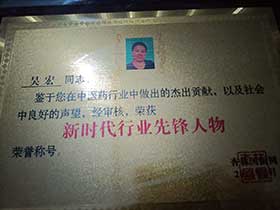 吴宏 同志:
鉴于您在中医药行业中做出的杰出贡献、以及社会
中良好的声望、经审核、荣获
新时代行业先锋人物
荣誉称号。